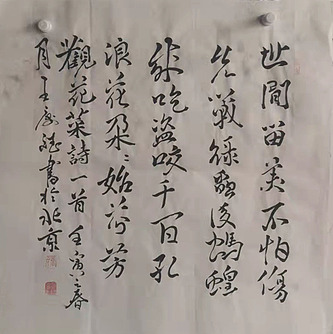 世間留美不怕傷
先戰綠蟲後螞蝗
我吃盜咬千百孔
浪花朵朵始芬芳
觀花菜詩一首壬寅之春
月王書於北京